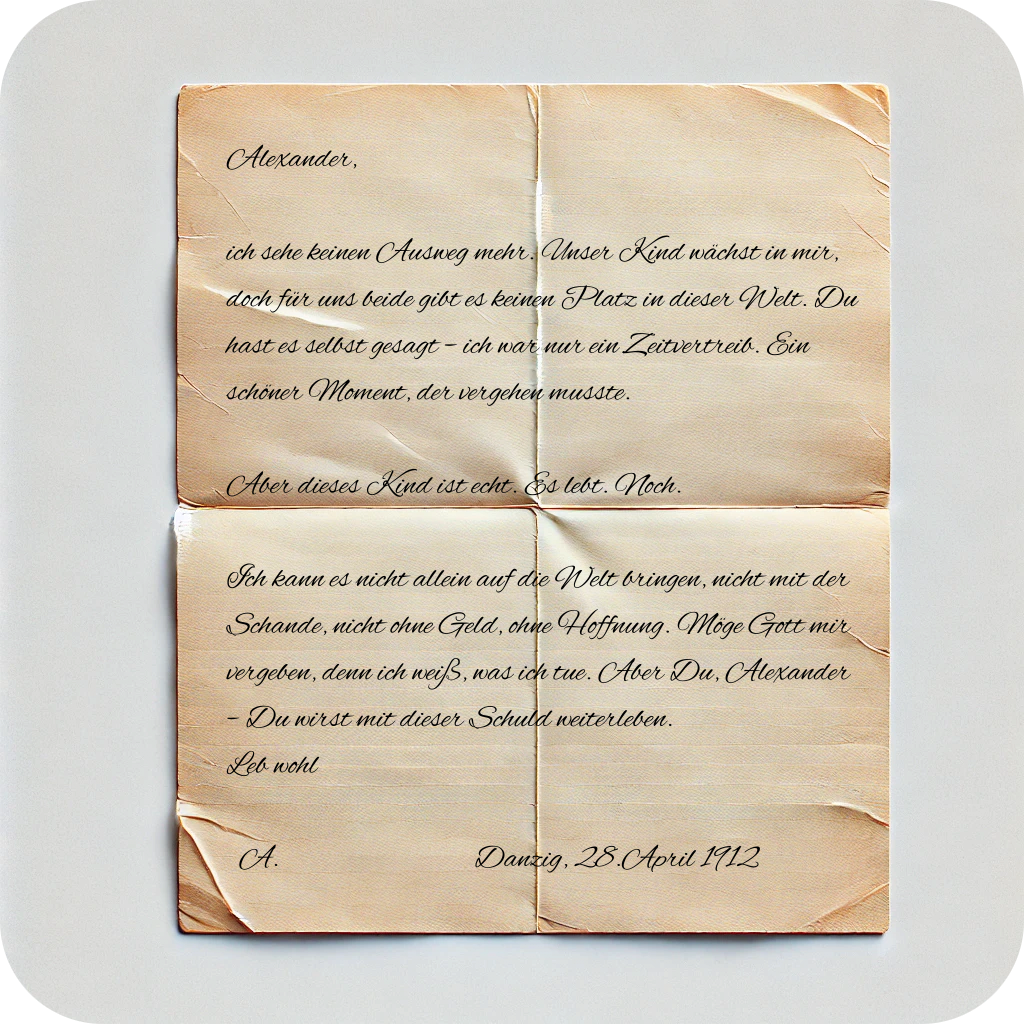 Alexander,
ich sehe keinen Ausweg mehr. Unser Kind wächst in mir,
doch für uns beide gibt es keinen Platz in dieser Welt. Du
hast es selbst gesagt – ich war nur ein Zeitvertreib. Ein
schöner Moment, der vergehen musste.
Aber dieses Kind ist echt. Es lebt. Noch.
Ich kann es nicht allein auf die Welt bringen, nicht mit der
Schande, nicht ohne Geld, ohne Hoffnung. Möge Gott mir
vergeben, denn ich weiß, was ich tue. Aber Du, Alexander
– Du wirst mit dieser Schuld weiterleben.
Leb wohl
A. Danzig, 28.April 1912